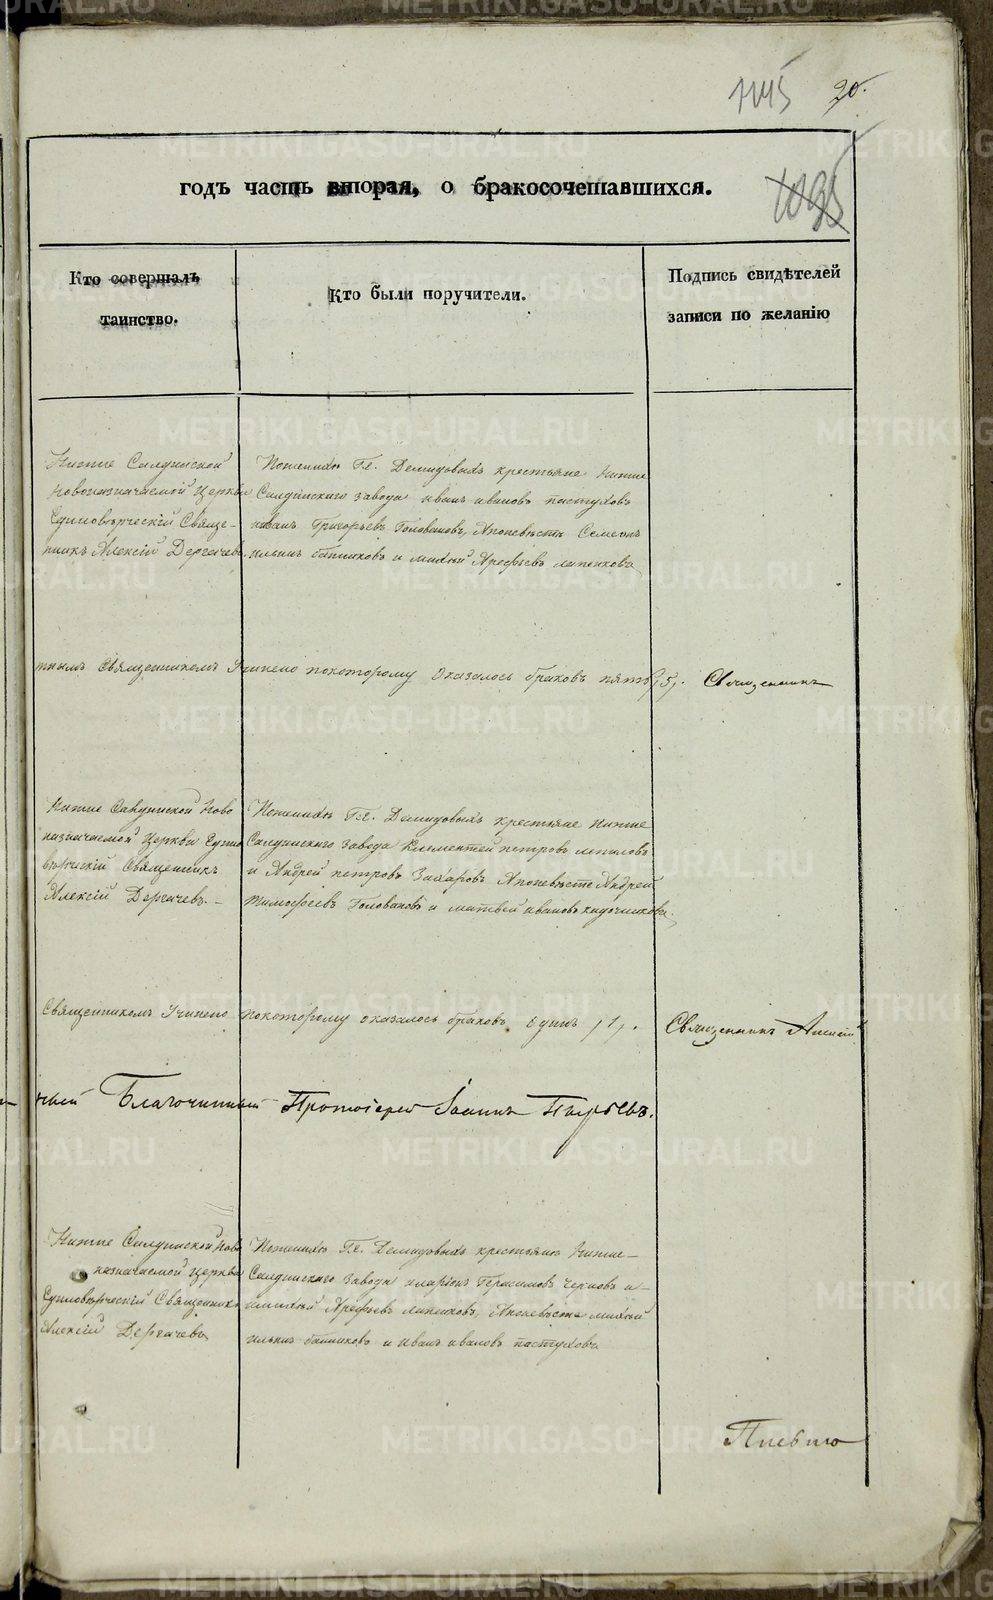 1145 20.
годъ часть вторая, о бракосочетавшихся.
1095
Кто совершалъ
таинство.
Кто были поручители.
Подпись свидѣтелей
записи по желанію
Нижне Салдинской
Новоназначаемой Церкви
Единовѣрческій Свяще-
нникъ Алексій Дергачевъ.
Пожениху Гг. Демидовыхъ крестьяне Нижне
Салдинскаго завода иванъ ивановъ пастуховъ
иванъ Григорьевъ Головановъ, Апоневѣсте Семеонъ
ильинъ банниковъ и михѣй Арефьевъ
тнымъ Священникомъ Учинено покоторому Оказалось браковъ пять /5/. Священникъ
Нижне Салдинской Ново
назначаемой Церкви Едино
вѣрческій Священникъ
Алексій Дергачевъ. –
Пожениху Гг. Демидовыхъ крестьяне Нижне
Салдинскаго завода Клементей петровъ
и Андрей петровъ Захаровъ Апоневѣсте Андрей
Тимофеевъ Головановъ и матвей ивановъ
Священникомъ Учинено покоторому оказалось браковъ одинъ /1/. Священникъ Алексій
Благочинный Протоіерей Іоаннъ Пырьевъ.
Нижне Салдинской Ново
назначаемой Церкви
Единовѣрческій Священникъ
Алексій Дергачевъ
Пожениху Гг. Демидовыхъ крестьяне Нижне-
Салдинскаго завода иларіонъ Герасимовъ черновъ и-
михѣй Арефьевъ Апоневѣсте михѣй
ильинъ банниковъ и иванъ ивановъ пастуховъ
METRIKI.GASO-URAL.RU